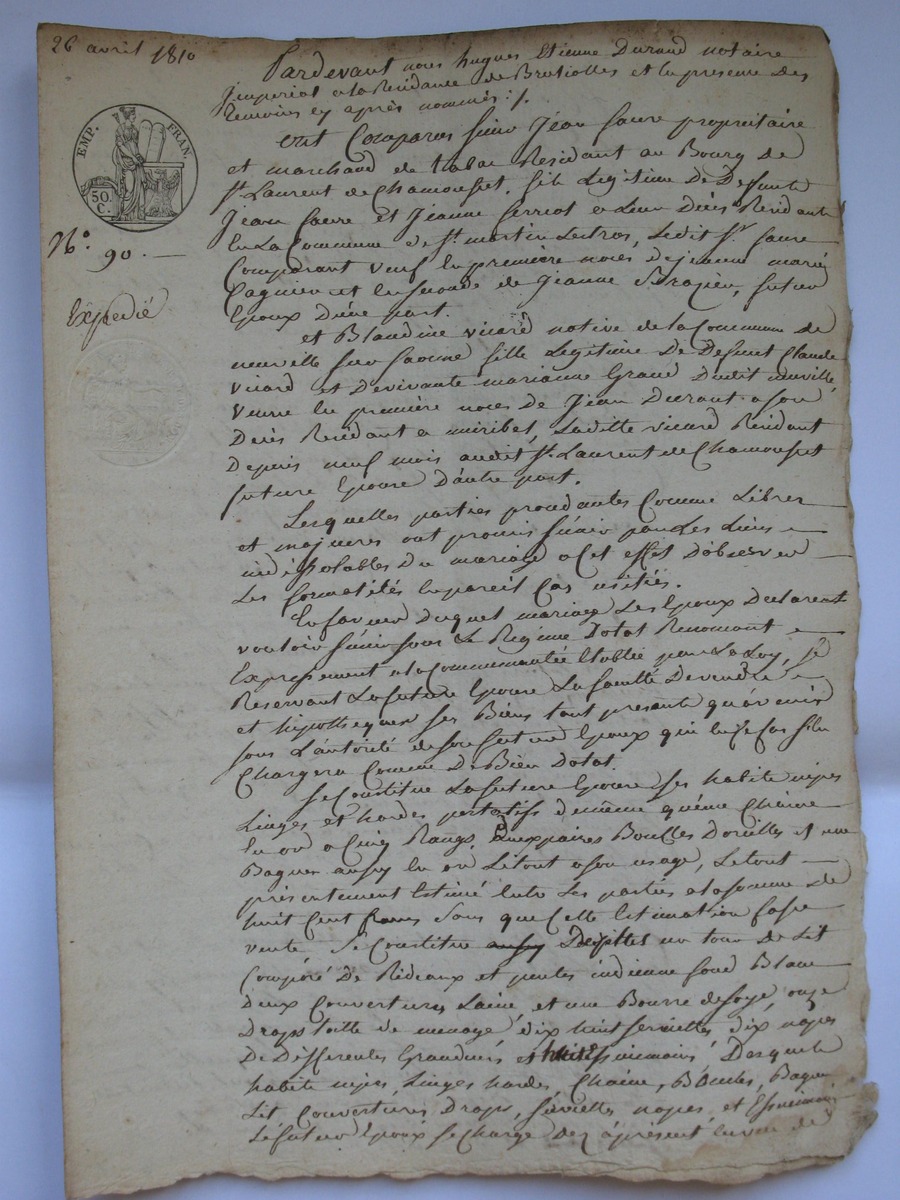 26 avril 1810
EMP. FRAN.
50. C.
N°. 90. —
Expedié
Pardevant nous hugues Etienne Durand notaire
Jmperial a la Residance de Brusiolles et en presence des
temoins cy après nommés :/.
ont Comparus sieur Jean faure propriétaire
et marchand de tabac Residant au Bourg de
St. Laurent de Chamousset, fils Legitime de Deffunts
Jean faure Et Jeanne ferriot a Leur décès Residants
En La Commune de St. martin Lestros, Ledit Sr. faure
Comparant veuf En première noces de jeanne marie
Pagnien et En seconde de Jeanne Brazier, futur
Epoux D'une part.
et Blandine vicard native de la Commune de
neuville sur saonne fille Legitime De Deffunt Claude
vicard et De vivante marianne Giraud Dudit neuville
veuve En première noces de Jean Durant a son
Décès Residant a miribel, Laditte vicard Residant
Depuis neuf mois audit St. Laurent de Chamousset
future Epouse D'autre part.
Lesquelles parties procedantes Comme Libres
et majeures ont promis s'unir par Les Liens
indissolubles du mariage a Cet effet D'observer
Les formalités En pareil Cas usitées.
En faveur duquel mariage Les Epoux Declarent
vouloir s'unir sous Le Regime Dotal Renoncant
Expressement a la Communautée Etablie par La Loy, se
Reservant La future Epouse La faculté De vendre
et hipothequer ses Biens tant presents qu'avenir
sous L'autorité de son futur Epoux qui En Ce Cas s'en
Chargera Comme De Bien Dotal.
Se Constitue La future Epouse ses habits nipes
Linges et hardes portatifs de même qu'une Chaine
En or a Cinq Rangs, Deux paires Boucles D'oreilles et une
Bague aussy En or Le tout a son usage, Le tout
présentement Estimé Entre Les parties a la somme de
huit Cent francs sans que Cette Estimation fasse
vente Se Constitue aussy un tour de Lit
Composé De Rideaux et pentes indienne fond Blanc
Deux Couvertures Laine, et une Bourre de soye, onze
Draps toille de menage dix huit serviettes dix napes
De Differentes Grandeurs et huit Essuiemains Desquels
habits nipes, Linges hardes, Chaine, Boucles, Bague
Lit Couvertures Draps, serviettes napes et Essuiemains
Le futur Epoux se Charge Dez àprésent En vue de